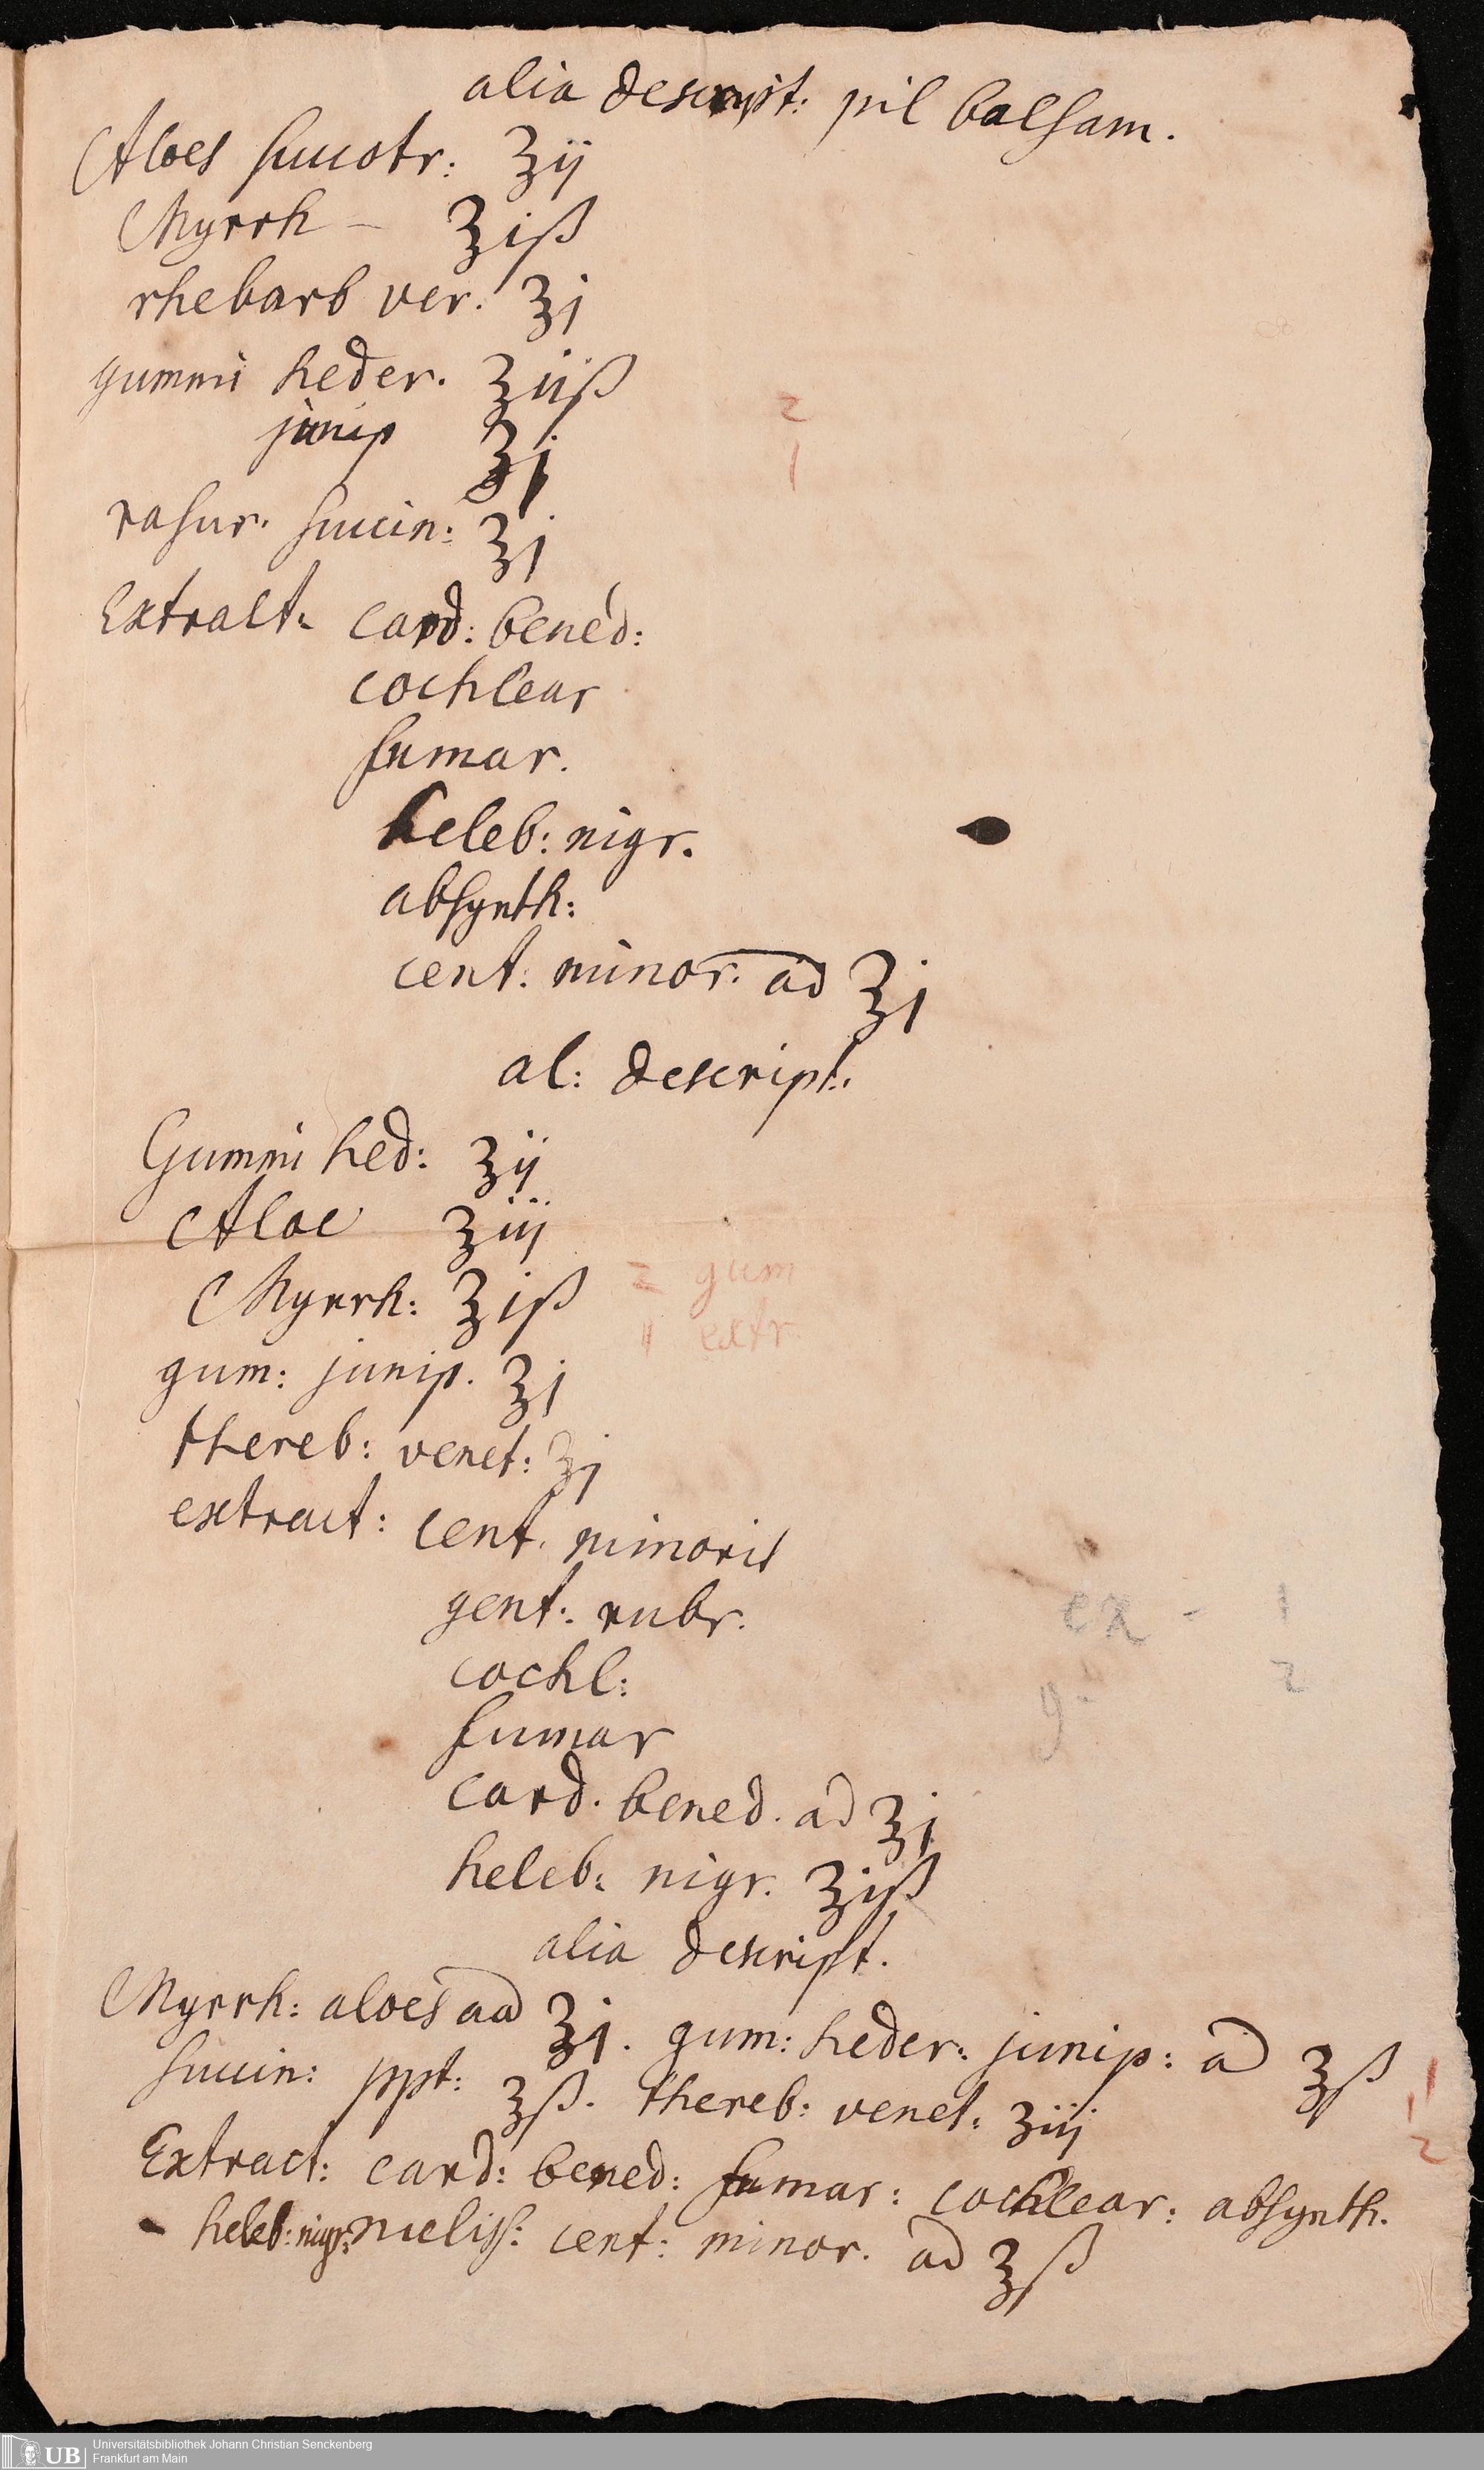 alia descript: pil balsam.
Aloes succotr: ʒij
Myrrh – ʒiß
rhebarb ver. ʒj
gummi heder. ʒiiß
junip ʒj
2
1
rasur. succin: ʒj
Extract: card: bened:
cochlear
fumar.
heleb: nigr.
absynth:
cent: minor. ad ʒj
al: descript:
Gummi hed: ʒij
Aloe ʒiij
Myrrh: ʒiß
2 gum
1 extr
gum: junip. ʒj
thereb: venet: ʒj
extract: cent. minoris
gent: rubr.
ex - 1
cochl:
g - 2
fumar
card. bened. ad ʒj
heleb: nigr. ʒiß
alia descript.
Myrrh: aloes aa ʒj. gum: heder: junip: a ʒß
succin: ppt: ʒß. thereb: venet: ʒiij
1
1
2
Extract: card: bened: fumar: cochlear: absynth.
- heleb: nigr: meliss: cent: minor. ad ʒß
UB
Universitätsbibliothek Johann Christian Senckenberg
Frankfurt am Main